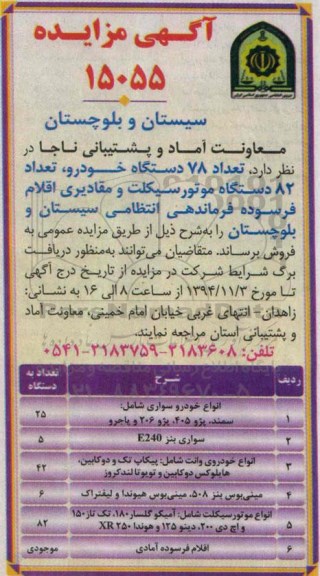 آگهی مزایده
۱۵۰۵۵
سیستان و بلوچستان
معاونت آماد و پشتیبانی ناجا در
نظر دارد، تعداد ۷۸ دستگاه خودرو، تعداد
۸۲ دستگاه موتورسیکلت و مقادیری اقلام
فرسوده فرماندهی انتظامی سیستان و
بلوچستان را به‌شرح ذیل از طریق مزایده عمومی به
فروش برساند. متقاضیان می‌توانند به‌منظور دریافت
برگ شرایط شرکت در مزایده از تاریخ درج آگهی
تا مورخ ۱۳۹۴/۱۱/۳ از ساعت ۸ الی ۱۶ به نشانی:
زاهدان - انتهای غربی خیابان امام خمینی، معاونت آماد
و پشتیبانی استان مراجعه نمایند.
تلفن: ۲۱۸۳۶۰۸-۲۱۸۳۷۵۹-۰۵۴۱
ردیف شرح تعداد به دستگاه
۱ انواع خودرو سواری شامل: سمند، پژو ۴۰۵، پژو ۲۰۶ و پاجرو ۲۵
۲ سواری بنز E240 ۵
۳ انواع خودروی وانت شامل: پیکاپ تک و دوکابین، هایلوکس دوکابین و تویوتا لندکروز ۴۲
۴ مینی‌بوس بنز ۵۰۸، مینی‌بوس هیوندا و لیفتراک ۶
۵ انواع موتورسیکلت شامل: آمیکو گلسار ۱۸۰، تک تاز ۱۵۰ و اچ دی ۲۰۰، دینو ۱۲۵ و هوندا XR ۲۵۰ ۸۲
۶ اقلام فرسوده آمادی موجودی